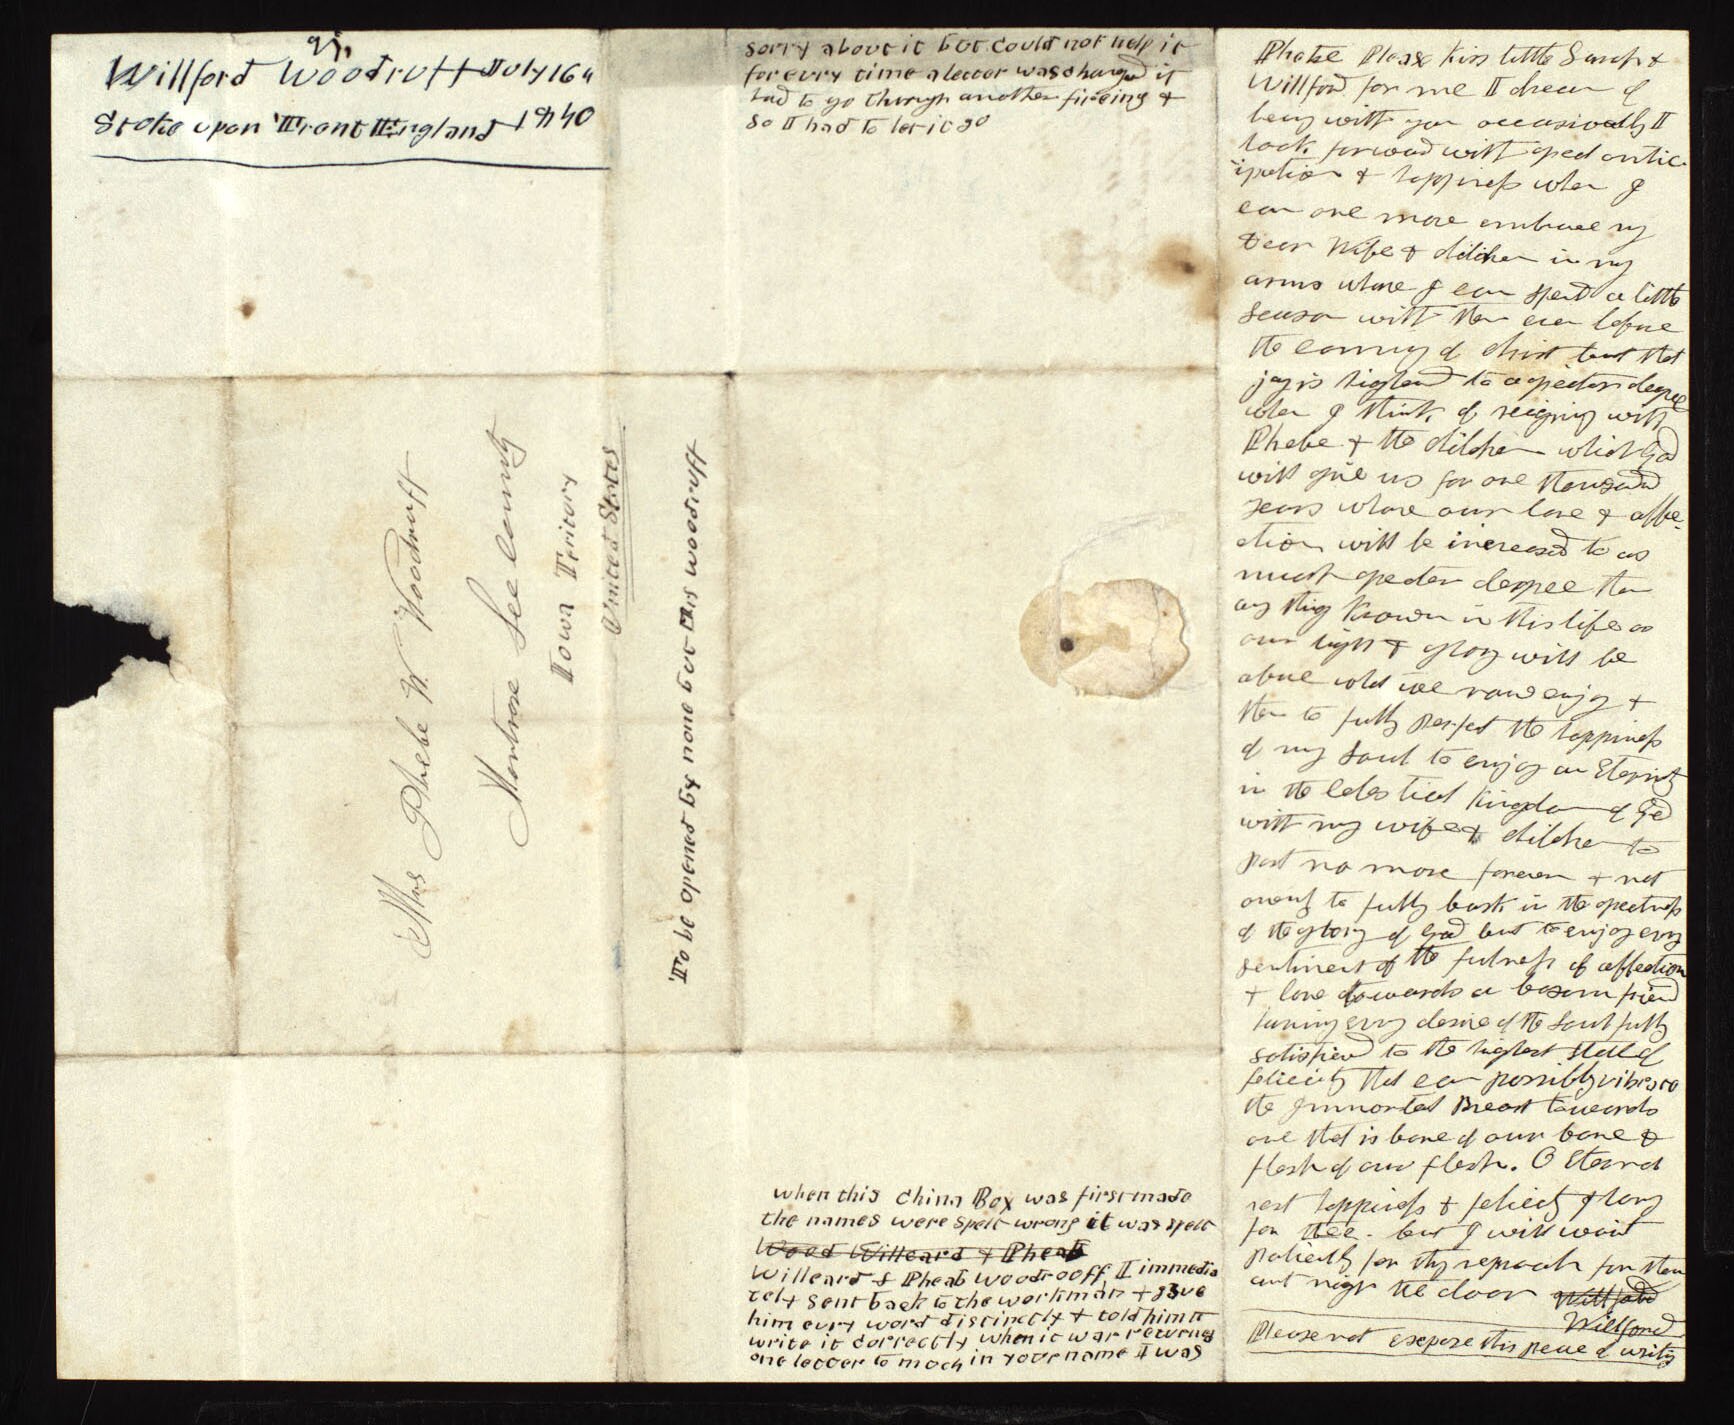 Willford Woodruff July 16th
Stoke upon Trent England 1840
Mrs Phebe W. Woodruff
Montrose Lee county
Iowa Teritory
United States
To be opened by none but Mrs Woodruff
when this China Box was first made
the names were spelt wrong it was spelt
Wood Willeard & Pheab
Willeard & Pheab Woodrooff, I immedia
tely sent back to the workman & gave
him evry word distinctly & told him to
write it correctly when it was returned
one letter to much in your name I was
sorry about it but could not help it
for evry time a letter was changed it
had to go through another fireing &
so I had to let it go
Phebe Please Kiss little Sarah &
Willford for me I dream of
being with you occasionally I
look forward with great antic-
ipation & happiness when I
can one more embrace my
dear Wife & children in my
arms whare I can spend a little
season with them even before
the coming of Christ but that
joy is hightend to a greater degree
when I think of reigning with
Phebe & the children which God
will give us for one thousand
years whare our love & affe-
ction will be increased to as
much greater degree than
any thing known in this life as
our light & glory will be
above what we now enjoy &
then to fully perfect the happiness
of my soul to enjoy an Eternity
in the Celestial Kingdom of God
with my wife & children to
part no more forever & not
ownly to fully bask in the greatness
of the glory of God but to enjoy evry
sentiment of the fulness of affection
& love towards a bosom friend
having evry desire of the soul fully
satisfied to the highest state of
felicity that can possibly vibrate
the Immortal Breast towards
one that is bone of our bone &
flesh of our flesh. O Eternal
rest happiness & felicity I long
for thee. but I will wait
patiently for thy approach for thou
art nigh the door Willford
Willford
Please not expose this peace of writing